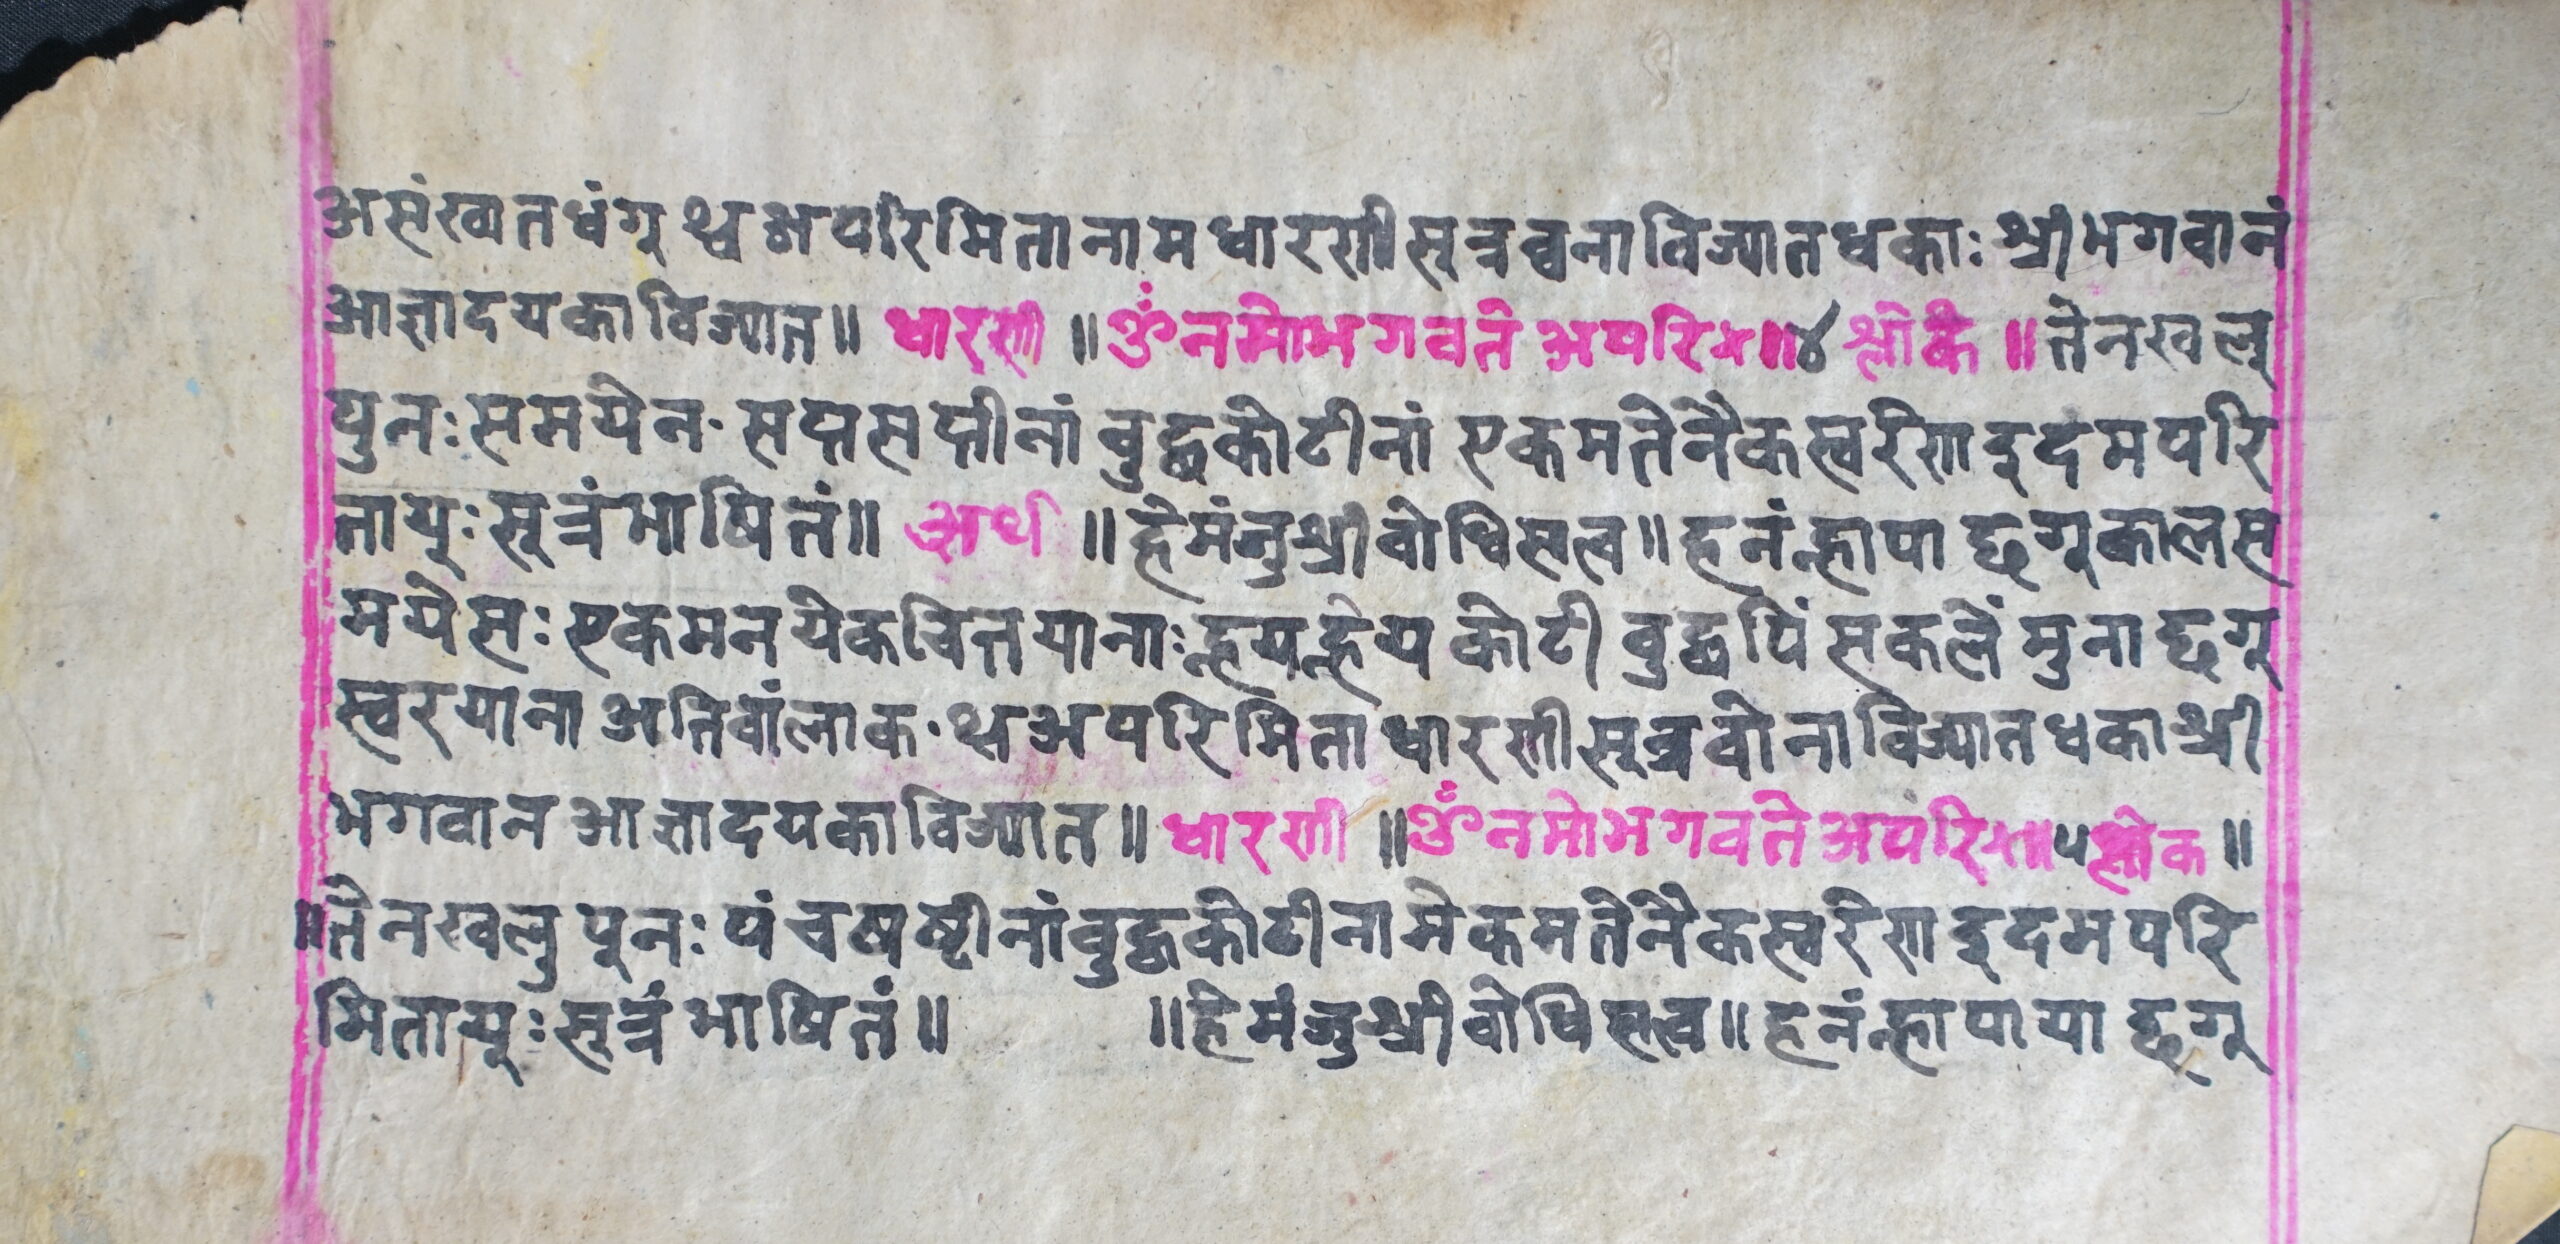 असंख्यातधंगु थ्वअपरिमितानामधारणीसूत्रब्वनाविज्यातधकाः श्रीभगवानं
आज्ञादयकाविज्यात॥ धारणी ॥ॐनमोभगवतेअपरिम॥४ श्लोक ॥ तेनखलु
पुनःसमयेन॰ सप्तसप्तीनां बुद्धकोटीनां एकमतेनैकस्वरेण इदमपरि
तायुःसूत्रंभाषितं॥ अर्थ ॥हेमंजुश्रीबोधिसत्व॥हनंन्हापा छगूकालस
मयेसः एकमनयेकचित्तयानाः ह्नयह्नेय कोटी बुद्धपिं सकलें मुना छगू
स्वरयाना अतिबांलाक॰ थ्वअपरिमिता धारणीसूत्रबोनाविज्यातधकाश्री
भगवान आज्ञादयकाविज्यात॥ धारणी ॥ॐनमोभगवतेअपरिमत॥५श्लोक॥
॥तेनखलु पूनः पंचषष्टीनांबुद्धकोटीनामेकमतेनैकस्वरेण इदमपरि
मितायुःसूत्रं भाषितं॥ ॥हेमंजुश्रीबोधिसत्व॥हनंन्हापाया छगू